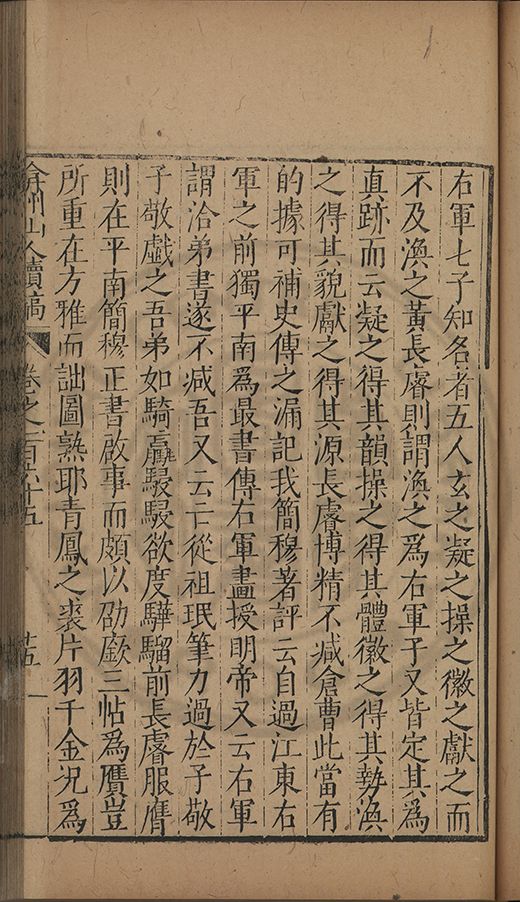 右軍七子知名者五人玄之凝之操之徽之獻之而
不及渙之黃長睿則謂渙之爲右軍子又皆定其爲
直跡而云凝之得其韻操之得其體徽之得其勢渙
之得其貌獻之得其源長睿博精不减倉曹此當有
的據可補史傳之漏記我簡穆著評云自過江東右
軍之前獨平南爲最書傳右軍畫授明帝又云右軍
謂洽弟書遂不减吾又云亡從祖珉筆力過於子敬
子敬戲之吾弟如騎驘駸駸欲度驊騮前長睿服膺
則在平南簡穆正書啟事而頗以劭廞三帖爲贋豈
所重在方雅而詘圖熟耶青鳳之裘片羽千金况爲
弇州山人續稿 卷之一百六十五 十五